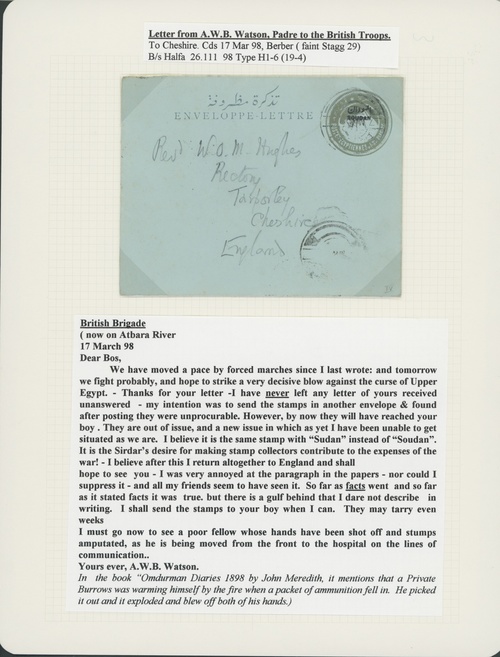 Letter from A.W.B. Watson, Padre to the British Troops.
To Cheshire. Cds 17 Mar 98, Berber ( faint Stagg 29)
B/s Halfa 26.111 98 Type H1-6 (19-4)
تذكرة مظروفة
ENVELOPPE-LETTRE
SOUDAN
Revd W. O. M. Hughes
Rectory
Tarporley
Cheshire
England
British Brigade
( now on Atbara River
17 March 98
Dear Bos,
We have moved a pace by forced marches since I last wrote: and tomorrow
we fight probably, and hope to strike a very decisive blow against the curse of Upper
Egypt. - Thanks for your letter -I have never left any letter of yours received
unanswered - my intention was to send the stamps in another envelope & found
after posting they were unprocurable. However, by now they will have reached your
boy . They are out of issue, and a new issue in which as yet I have been unable to get
situated as we are. I believe it is the same stamp with "Sudan" instead of "Soudan".
It is the Sirdar's desire for making stamp collectors contribute to the expenses of the
war! - I believe after this I return altogether to England and shall
hope to see you - I was very annoyed at the paragraph in the papers - nor could I
suppress it - and all my friends seem to have seen it. So far as facts went and so far
as it stated facts it was true. but there is a gulf behind that I dare not describe in
writing. I shall send the stamps to your boy when I can. They may tarry even
weeks
I must go now to see a poor fellow whose hands have been shot off and stumps
amputated, as he is being moved from the front to the hospital on the lines of
communication..
Yours ever, A.W.B. Watson.
In the book "Omdurman Diaries 1898 by John Meredith, it mentions that a Private
Burrows was warming himself by the fire when a packet of ammunition fell in. He picked
it out and it exploded and blew off both of his hands.)